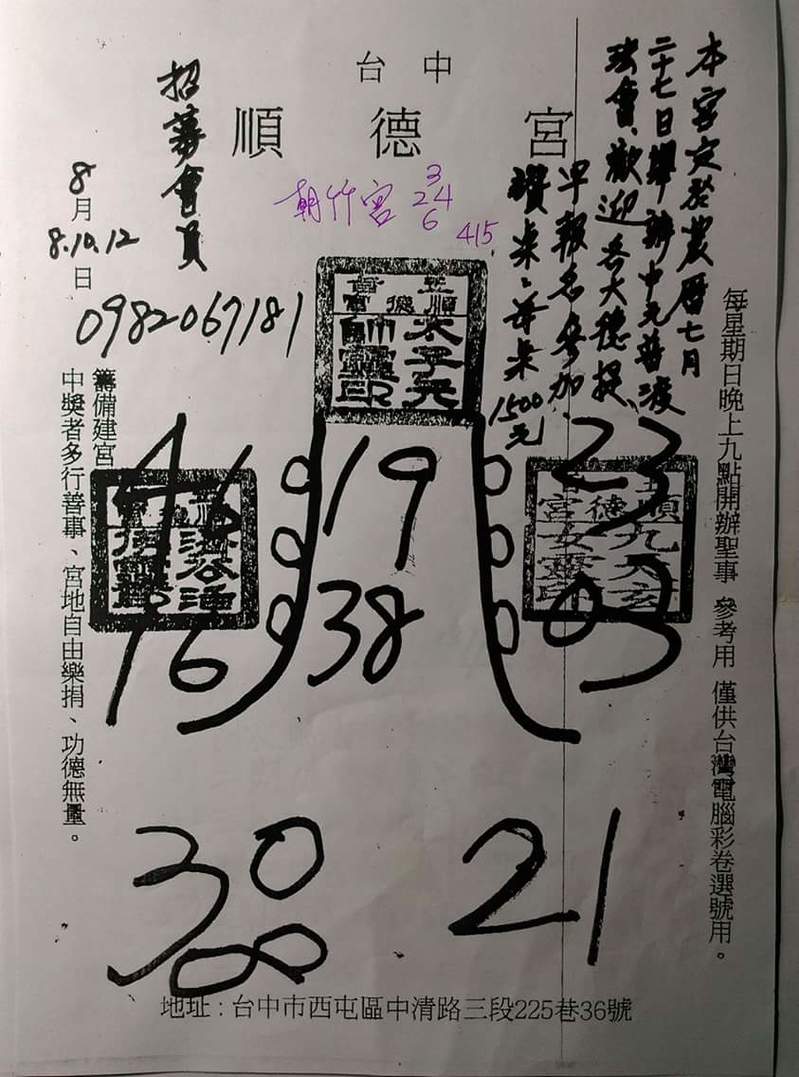 台中
順德宮
本宮定於農曆七月
二十七日舉辦中元普渡
法會、歡迎各大德提
早報名參加、
讚桌：每桌
1500元
招募會員
8月
8.10.12日
0982067181
朝竹宮
3
24
6
415
每星期日晚上九點開辦聖事 參考用 僅供台灣電腦彩卷選號用。
籌備建宮
中獎者多行善事、宮地自由樂捐、功德無量。
順德宮
太子元
帥靈印
46
19
23
順德宮
九天玄
女靈印
16
38
03
30
8
21
地址：台中市西屯區中清路三段225巷36號